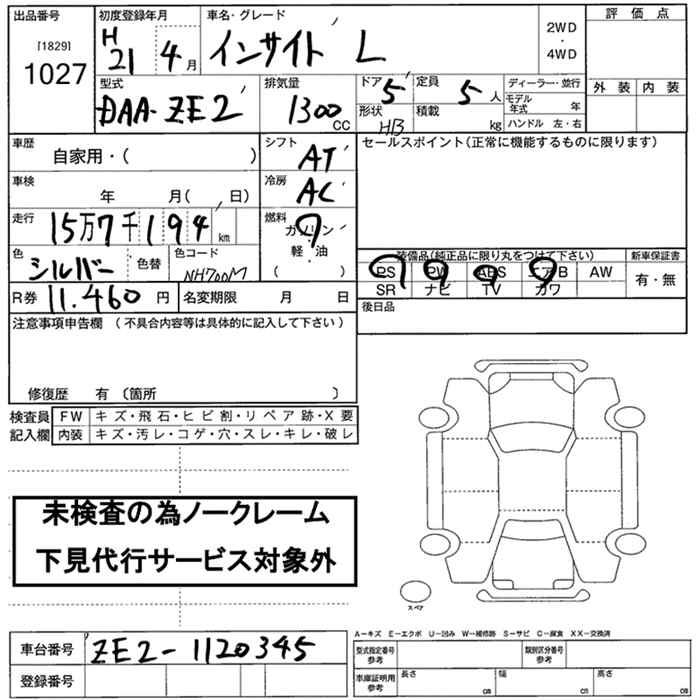 出品番号 [1829] 1027
初度登録年月 H21 4月
車名・グレード インサイト L
2WD・4WD
評価点
外装 内装
型式 DAA-ZE2
排気量 1300 CC
ドア 5
形状 HB
定員 5人
積載 kg
ディーラー・並行
モデル年式 年
ハンドル 左・右
車歴 自家用・( )
シフト AT
セールスポイント(正常に機能するものに限ります)
車検 年 月( 日)
冷房 AC
走行 15万7千194km
燃料 ガソリン
軽・油
( )
色 シルバー 色替
色コード NH700M
装備品(純正品に限り丸をつけて下さい)
新車保証書
PS PW ABS エアB AW
有・無
SR ナビ TV カワ
R券 11,460円 名変期限 月 日
後日品
注意事項申告欄 (不具合内容等は具体的に記入して下さい)
修復歴 有 (箇所 )
検査員 FW キズ・飛石・ヒビ割・リペア跡・X要
記入欄 内装 キズ・汚レ・コゲ・穴・スレ・キレ・破レ
未検査の為ノークレーム
下見代行サービス対象外
スペア
A-キズ E-エクボ U-凹み W-補修跡 S-サビ C-腐食 XX-交換済
車台番号 ZE2-1120345
型式指定番号 参考
類別区分番号 参考
登録番号
車庫証明用 参考
長さ cm 幅 cm 高さ cm